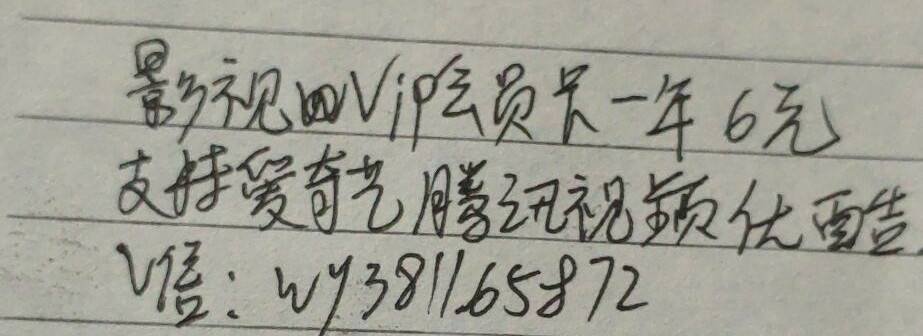 影视VIP会员卡一年6元
支持爱奇艺腾讯视频优酷
V信：wy381165872